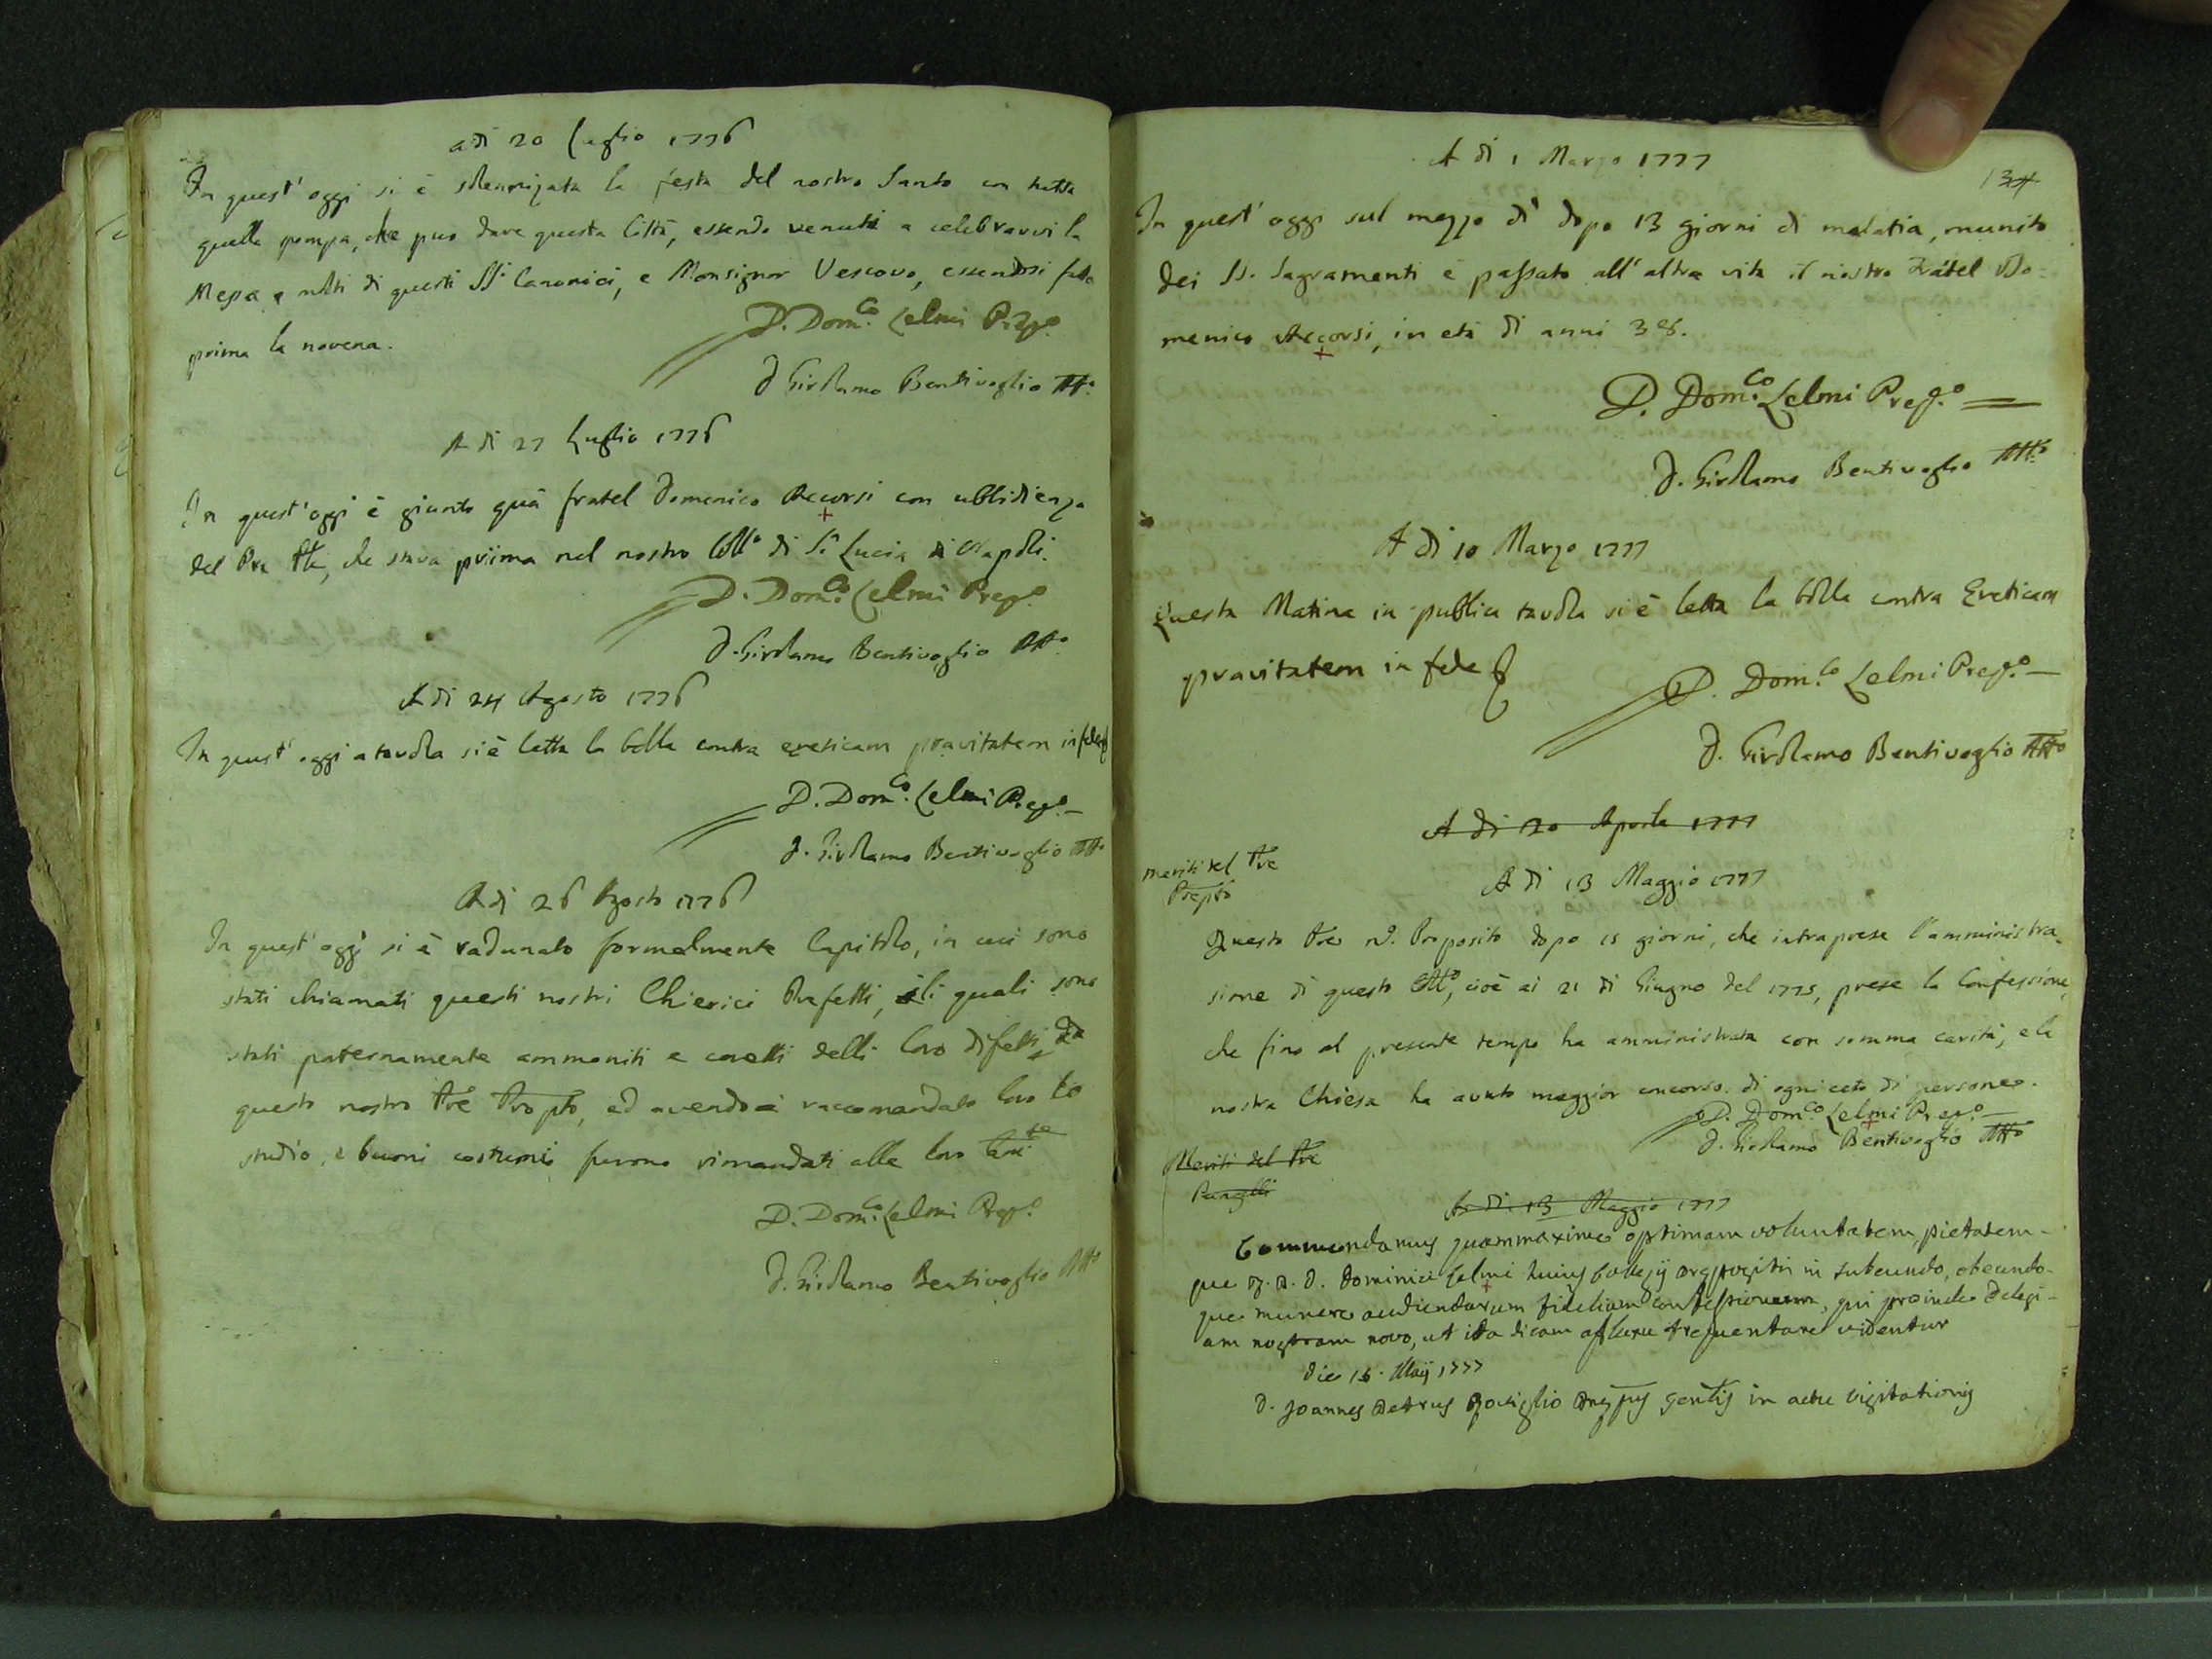 adì 20 Luglio 1776
In quest' oggi si è solennizata la festa del nostro Santo con tutta
quella pompa, che puo dare questa Città, essendo venuti a celebrarvi la
Messa e molti di questi SS.i Canonici, e Monsignor Vescovo, essendosi fatta
prima la novena.
D. Dom.co Lelmi Prep.o
D. Girolamo Bentivoglio Att.o
A dì 27 Luglio 1776
In quest' oggi è giunto quà fratel Domenico Accorsi con ubbidienza
del Pre Gle, che stava prima nel nostro Coll.o di S.a Lucia di Napoli.
D. Dom.co Lelmi Prep.o
D. Girolamo Bentivoglio Att.o
A dì 24 Agosto 1776
In quest' oggi a tavola si è letta la bolla contra ereticam pravitatem in fede
D. Dom.co Lelmi Prep.o
D. Girolamo Bentivoglio Att.o
A dì 26 Agosto 1776
In quest' oggi si è radunato formalmente Capitolo, in cui sono
stati chiamati questi nostri Chierici Prefetti, li quali sono
stati paternamente ammoniti e coretti delli loro difetti da
questo nostro Pre Propto, ed avendo raccomandato loro lo
studio, e buoni costumi furono rimandati alle loro
D. Dom.co Lelmi Prep.o
D. Girolamo Bentivoglio Att.o
134
A dì 1 Marzo 1777
In quest' oggi sul mezzo dì dopo 13 giorni di malatia, munito
dei SS. Sagramenti è passato all' altra vita il nostro Fratel Do=
menico Accorsi, in età di anni 38.
D. Dom.co Lelmi Prep.o
D. Girolamo Bentivoglio Att.o
A dì 10 Marzo 1777
Questa Matina in publica tavola si è letta la bolla contra Ereticam
pravitatem in fede
D. Dom.co Lelmi Prep.o
D. Girolamo Bentivoglio Att.o
A dì 20 Aprile 1777
meriti del Pre
Prepto
A dì 13 Maggio 1777
Questo Pre N. Proposito dopo 15 giorni, che intraprese l'amministra=
sione di questo Coll.o, cioè ai 21 di Giugno del 1775, prese la Confessione,
che fino al presente tempo ha amministrata con somma carità, e la
nostra Chiesa ha avuto maggior concorso di ogni ceto di persone.
D. Dom.co Lelmi Prep.o
D. Girolamo Bentivoglio Att.o
Meriti del Pre
A dì 13 Maggio 1777
Commendamus quammaxime optimam voluntatem, pietatem-
que D. Dominici Lelmi huius Collegij Prepositi in subeundo, obeundo-
que munere audiendarum fidelium confessionum, qui proinde Eclesi-
am nostram novo, ut ita dicam afluxu frequentare videntur
die 15 Maij 1777
D. Joannes Petrus Gentis in actu visitationis